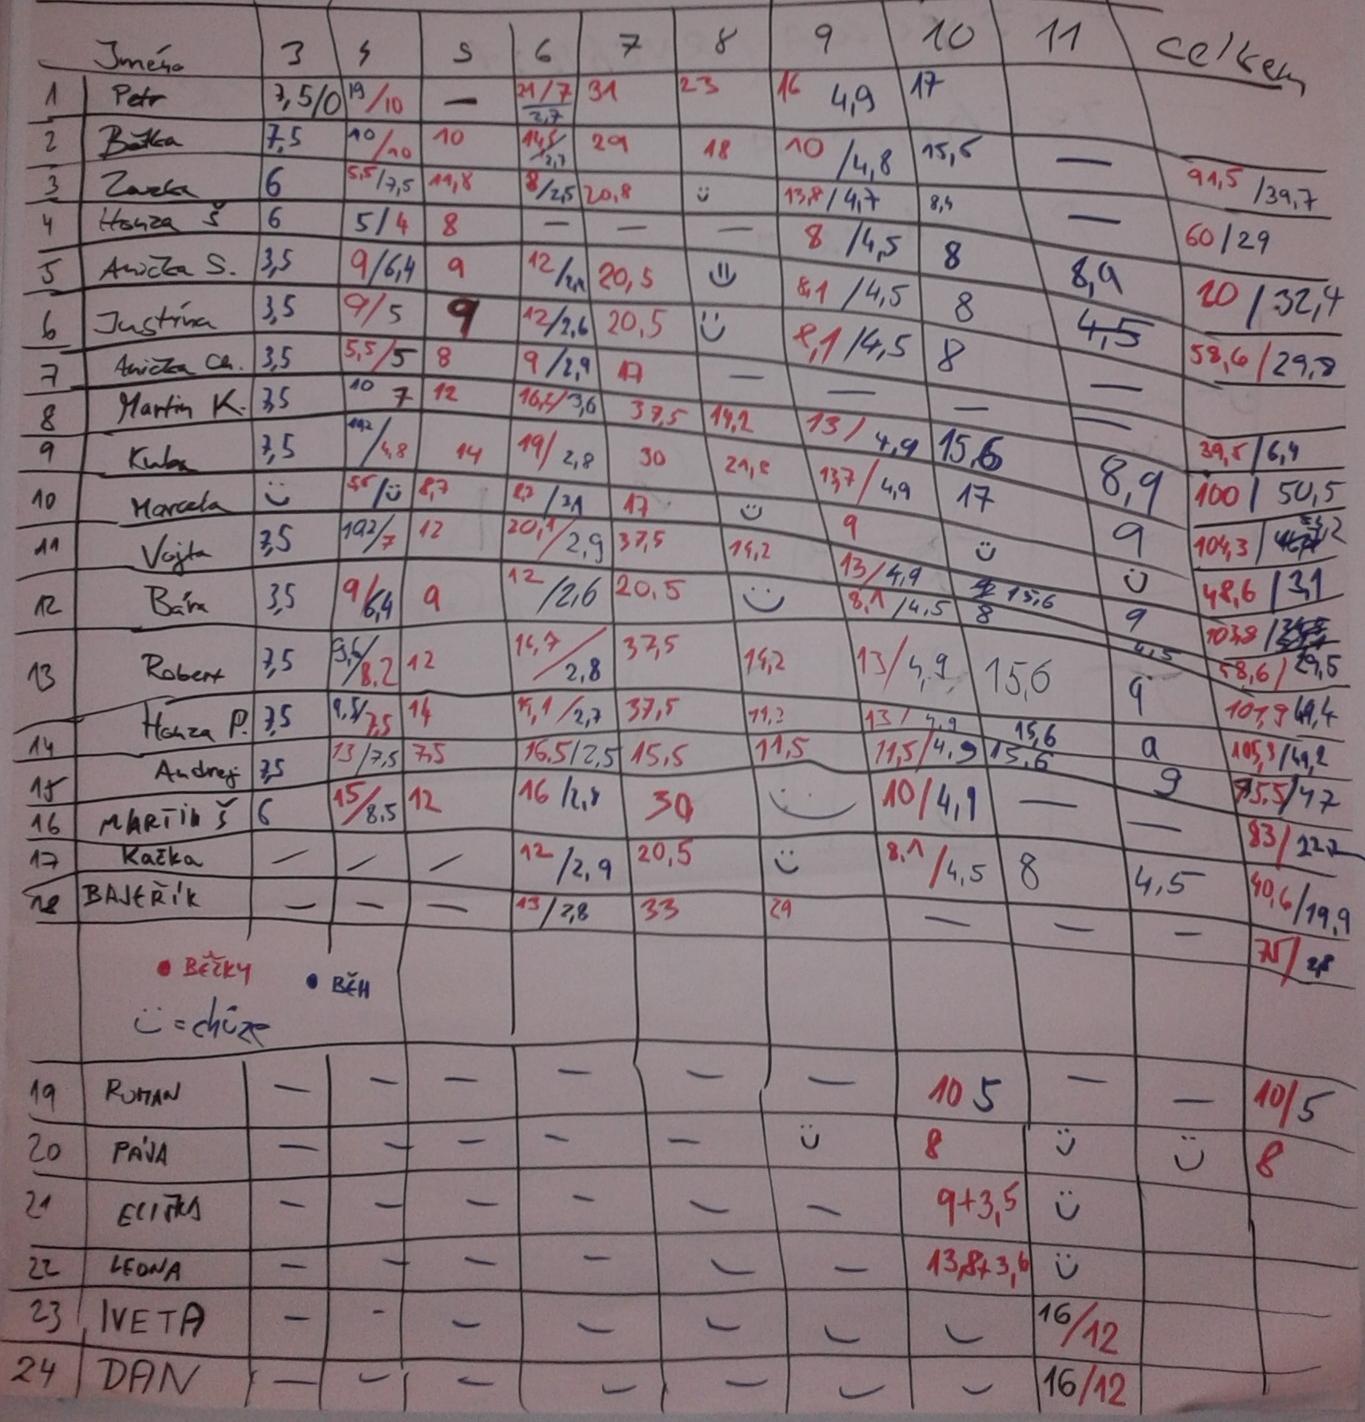 Jméno 3 4 5 6 7 8 9 10 11 celkem
1 Petr 7,5/0 19/10 — 21/7 2,7 31 23 16 4,9 17
2 Bětka 7,5 10/10 10 14,5/2,7 29 18 10/4,8 15,5 — 91,5/39,7
3 6 5,5/7,5 11,8 8/2,5 20,8 ü 13,8/4,7 8,4 — 60/29
4 Honza Š 6 5/4 8 — — — 8/4,5 8 8,9 20/32,4
5 Anička S. 3,5 9/6,4 9 12/ 20,5 ü 8,1/4,5 8 4,5 58,6/29,8
6 Justína 3,5 9/5 9 12/2,6 20,5 ü 8,1/4,5 8 —
7 Anička Ch. 3,5 5,5/5 8 9/2,9 17 — — — — 39,5/6,4
8 Martin K. 7,5 10 7 12 16,5/3,6 37,5 14,2 13/4,9 15,6 8,9 100/50,5
9 Kuba 7,5 19,2/4,8 14 19/2,8 30 21,2 13,7/4,9 17 9 104,3/
10 Marcela ü 5,5/ü 8,7 8,7/3,1 17 ü 9 ü ü 48,6/3,1
11 Vojta 7,5 19,2/7 12 20,1/2,9 37,5 14,2 13/4,9 15,6 9 103,8/
12 Bára 3,5 9/6,4 9 12/2,6 20,5 ü 8,1/4,5 8 4,5 58,6/29,5
13 Robert 7,5 9,5/8,2 12 16,7/2,8 37,5 14,2 13/4,9 15,6 9 107,9 49,4
14 Honza P. 7,5 9,5/7,5 14 15,1/2,7 37,5 14,2 13/4,9 15,6 9 105,3/49,2
15 Andrej 7,5 13/7,5 7,5 16,5/2,5 15,5 11,5 11,5/4,9 15,6 9 75,5/47
16 MARTIN Š 6 15/8,5 12 16/2,8 30 ü 10/4,9 — — 83/22,2
17 Kačka — — — 12/2,9 20,5 ü 8,1/4,5 8 4,5 40,6/19,9
18 BAJEŘÍK — — — 13/2,8 33 29 — — — 75/2,8
• BĚŽKY • BĚH
ü = chůze
19 ROMAN — — — — — — 10 5 — — 10/5
20 PÁJA — — — — — ü 8 ü ü 8
21 ELIŠKA — — — — — — 9+3,5 ü
22 LEONA — — — — — — 13,8+3,6 ü
23 IVETA — - — — — — — 16/12
24 DAN — — — — — — — 16/12